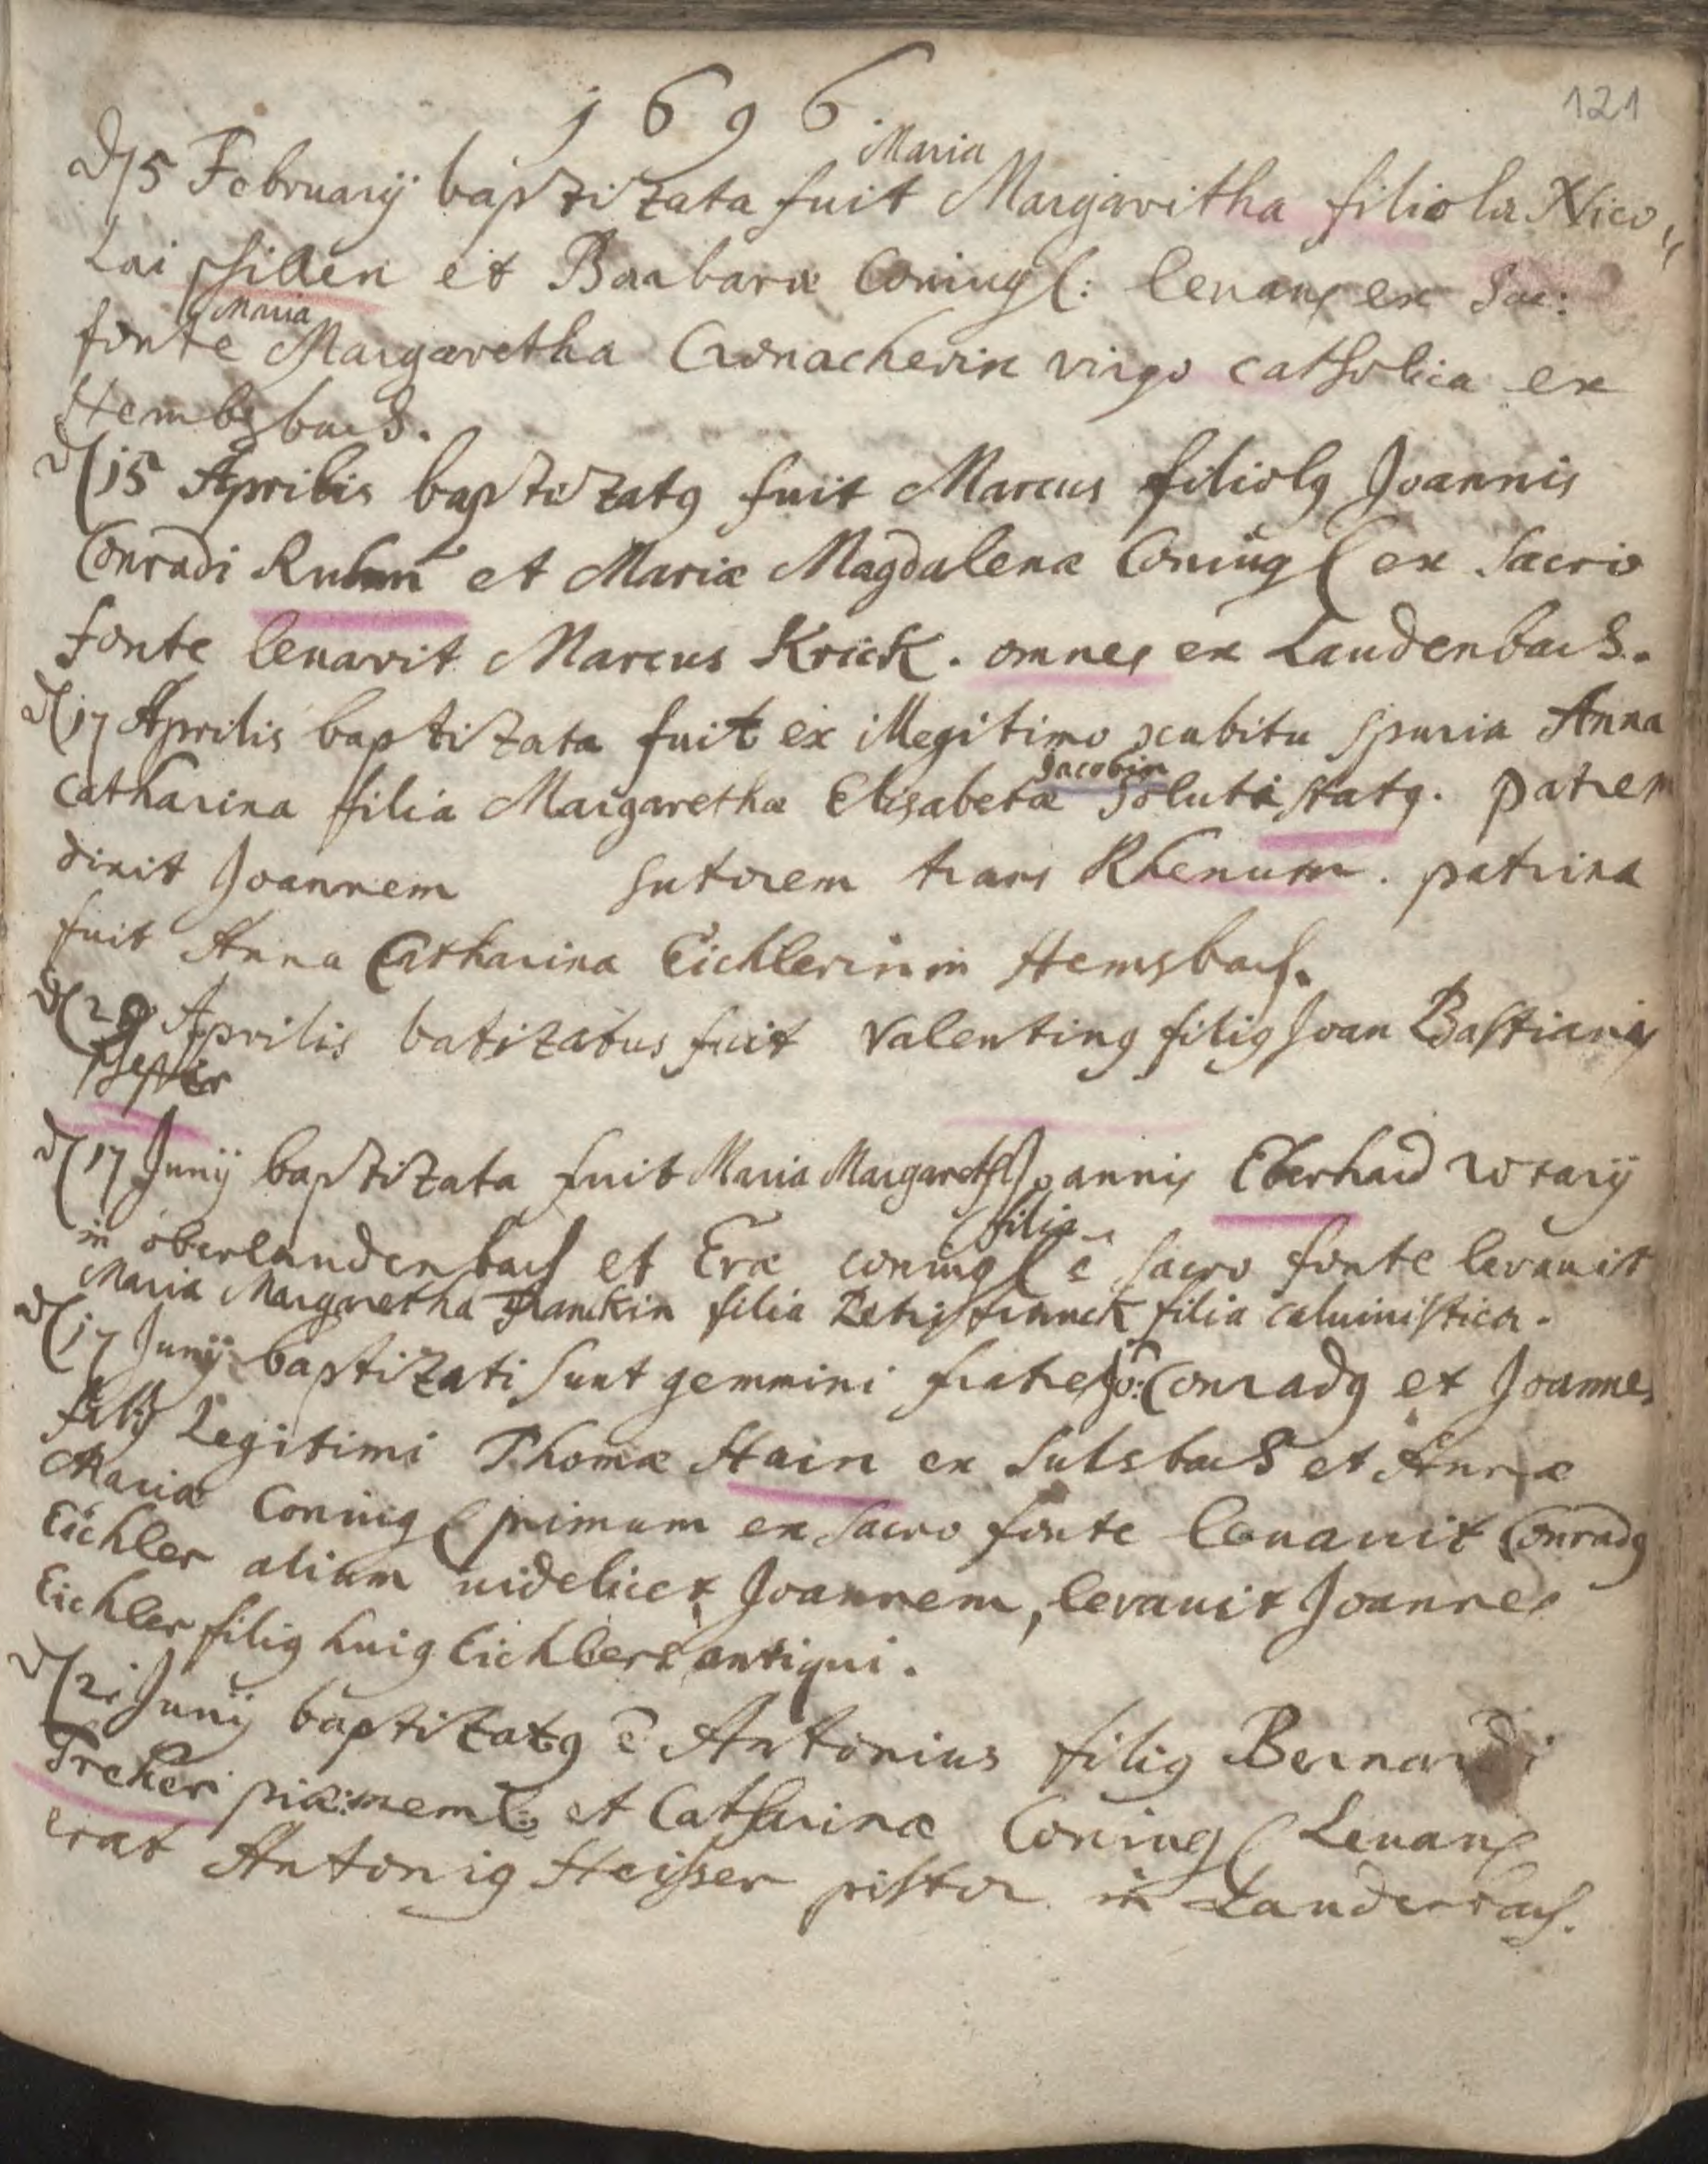 121
1696
Maria
d 15 Februarij baptizata fuit Margaritha filiola Nico„
Lai sillen et Barbaræ Coniugl: levans ex Sac:
Maria
fonte Margaretha Cronacherin virgo catholica ex
Hembsbach.
d 15 Aprilis baptizatq fuit Marcus filiolq Joannis
Conradi et Mariæ Magdalenæ Coniug ex Sacro
fonte levavit Marcus Krick. omnes ex Laudenbach.
d 17 Aprilis baptizata fuit ex illegitimo scubitu spuria Anna
Jacobin
Catharina filia Margarethæ Elisabetæ Soluti statq. patrem
dixit Joannem sutorem trans Rhenum. patrina
fuit Anna Catharina Eichlerin in Hemsbach.
d Aprilis batizatus fuit Valentinq filiq Joan Bastianis
d 17 Junij baptizata fuit Maria Margareth Joannis Eberhard rotarij
filia
in oberlaudenbach et Evæ coniug è sacro fonte levavit
Maria Margretha Franckin filia Petri franck filia calvinistica.
d 17 Junij baptizati sunt gemmini fratres Jo: Conradq et Joannes
filij Legitimi Thomæ Stain ex Sulsbach et Annæ
Mariæ Coniug primum ex sacro fonte levavit Conradq
Eichler alium videlicet Joannem, levavit Joannes
Eichler filiq huiq Eichlers antiqui.
d 21 Junij baptizatq ē Antonius filiq Bernardi
Treher piæ: mem: et Catharinæ Coniug Levans
erat Antoniq Heisser pistor in Laudenbach.